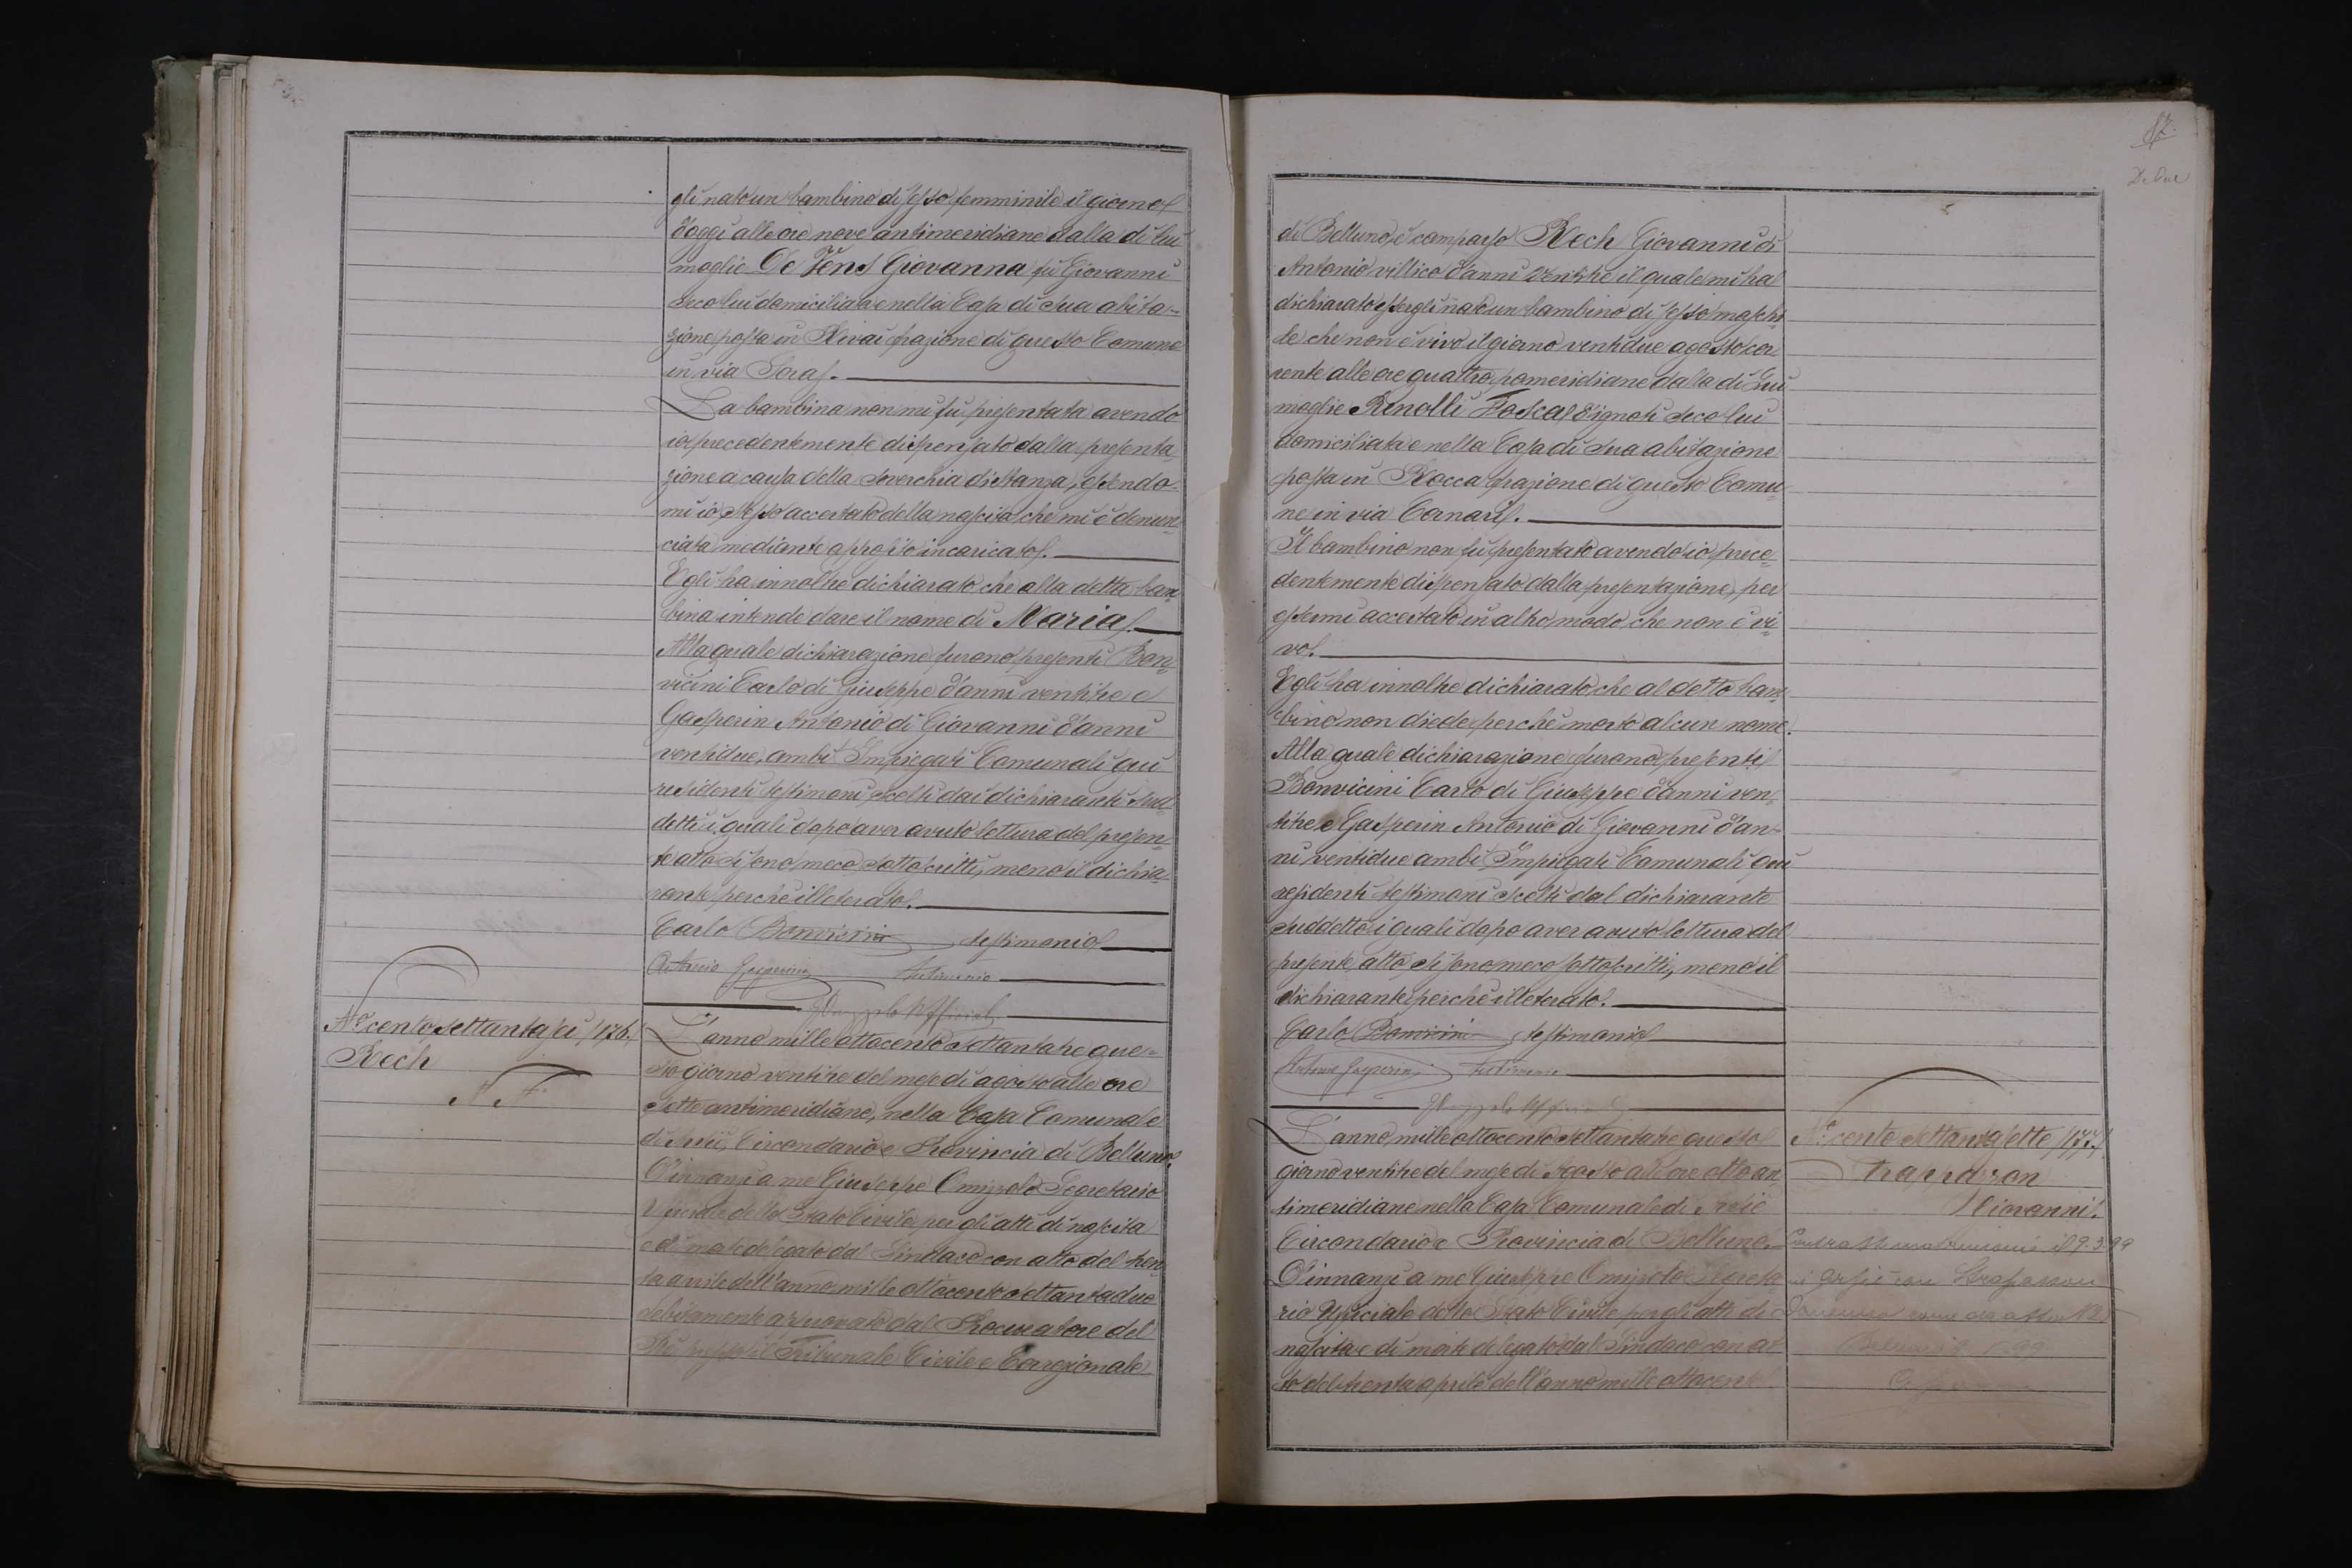 gli nato un bambino di sesso femminile il giorno
d'oggi alle ore nove antimeridiane dalla di lui
moglie De Vens Giovanna fu Giovanni
seco lui domiciliata e nella Casa di sua abita=
zione posta in Rivai frazione di questo Comune
in via
La bambina non mi fu presentata avendo
io precedentemente dispensato dalla presenta=
zione a causa della soverchia distanza, essendo=
mi io stesso accertato della nascita che mi è denun=
ciata mediante apposito incaricato.
Egli ha innoltre dichiarato che alla detta bam=
bina intende dare il nome di Maria.
Alla quale dichiarazione furono presenti Bon=
vicini Carlo di Giuseppe d'anni ventitre e
Gasperin Antonio di Giovanni d'anni
ventidue, ambi Impiegati Comunali qui
residenti testimoni scelti dai dichiaranti sud=
detti i quali dopo aver avuto lettura del presen=
te atto si sono meco sottoscritti, meno il dichia=
rante perchè illeterato.
Carlo Bonvicini testimonio
Antonio Gasperin testimonio
Omizzolo Ufficiale
No cento settantasei /176./
Rech
N. N.
L'anno mille ottocento settantatre que=
sto giorno ventitre del mese di agosto alle ore
sette antimeridiane, nella Casa Comunale
di Arsiè, Circondario e Provincia di Belluno.
D'innanzi a me Giuseppe Omizzolo Segretario
Ufficiale dello Stato Civile per gli atti di nascita
e di morte delegato dal Sindaco con atto del tren=
ta aprile dell'anno mille ottocento settantadue
debitamente approvato dal Procuratore del
Rè presso il Tribunale Civile e Correzionale
di Belluno, è comparso Rech Giovanni di
Antonio villico d'anni ventitre il quale mi ha
dichiarato essergli nato un bambino di sesso maschi=
le che non è vivo il giorno ventidue agosto cor=
rente alle ore quattro pomeridiane dalla di Lui
moglie Renolli Fosca d'ignoti seco lui
domiciliata e nella Casa di sua abitazione
posta in Rocca frazione di questo Comu=
ne in via Cornari.
Il bambino non fu presentato avendo io prece=
dentemente dispensato dalla presentazione, per
essermi accertato in altro modo che non è vi=
vo.
Egli ha innoltre dichiarato che al detto bam=
bino non diede perchè morto alcun nome.
Alla quale dichiarazione furono presenti
Bonvicini Carlo di Giuseppe d'anni ven=
titre e Gasperin Antonio di Giovanni d'an=
ni ventidue ambi Impiegati Comunali qui
residenti testimoni scelti dal dichiarante
suddetto i quali dopo aver avuto lettura del
presente atto si sono meco sottoscritti, meno il
dichiarante perchè illeterato.
Carlo Bonvicini testimonio
Antonio Gasperin testimonio
Omizzolo Ufficiale
L'anno mille ottocento settantatre questo
giorno ventitre del mese di Agosto alle ore otto an=
timeridiane nella Casa Comunale di Arsiè
Circondario e Provincia di Belluno.
D'innanzi a me Giuseppe Omizzolo Segreta=
rio Ufficiale dello Stato Civile per gli atti di
nascita e di morte delegato dal Sindaco con at=
to del trenta aprile dell'anno mille ottocento
No cento settantasette /177./
Giovanni.
Contrasse matrimonio il 9.3.99